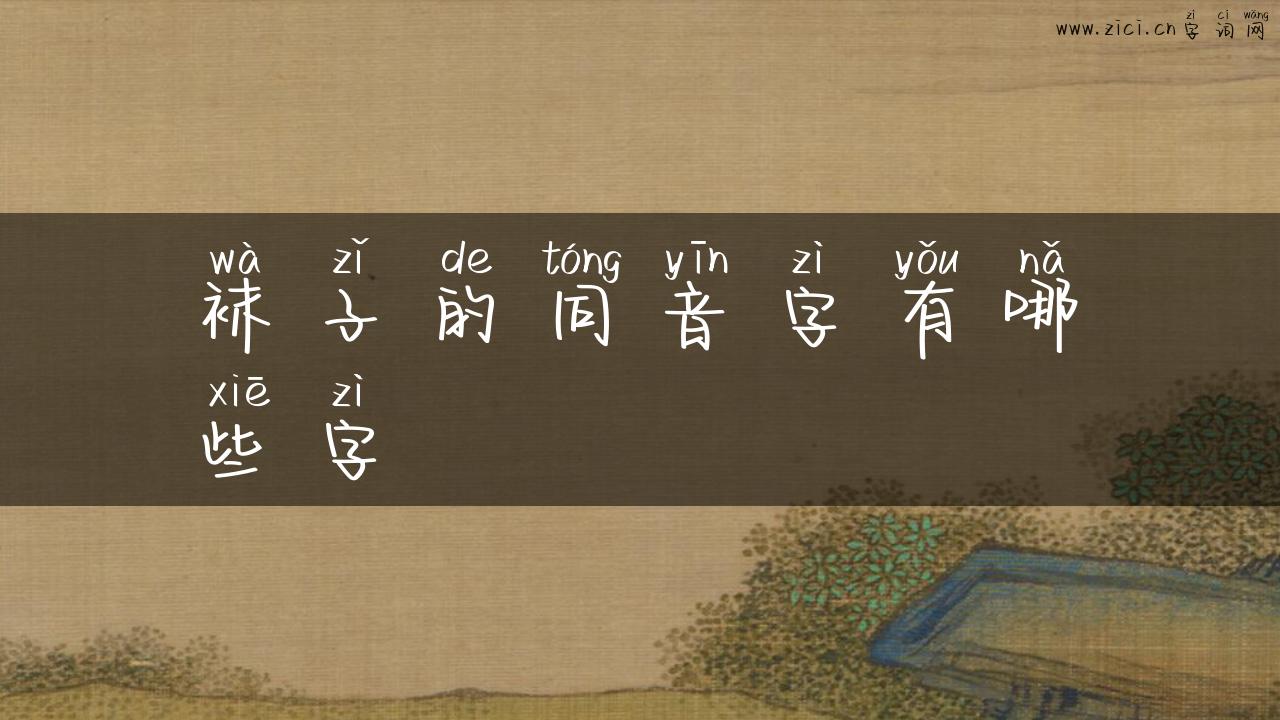 zì cí wǎng
www.zici.cn字词网
wà zǐ de tóng yīn zì yǒu nǎ
袜子的同音字有哪
xiē zì
些字